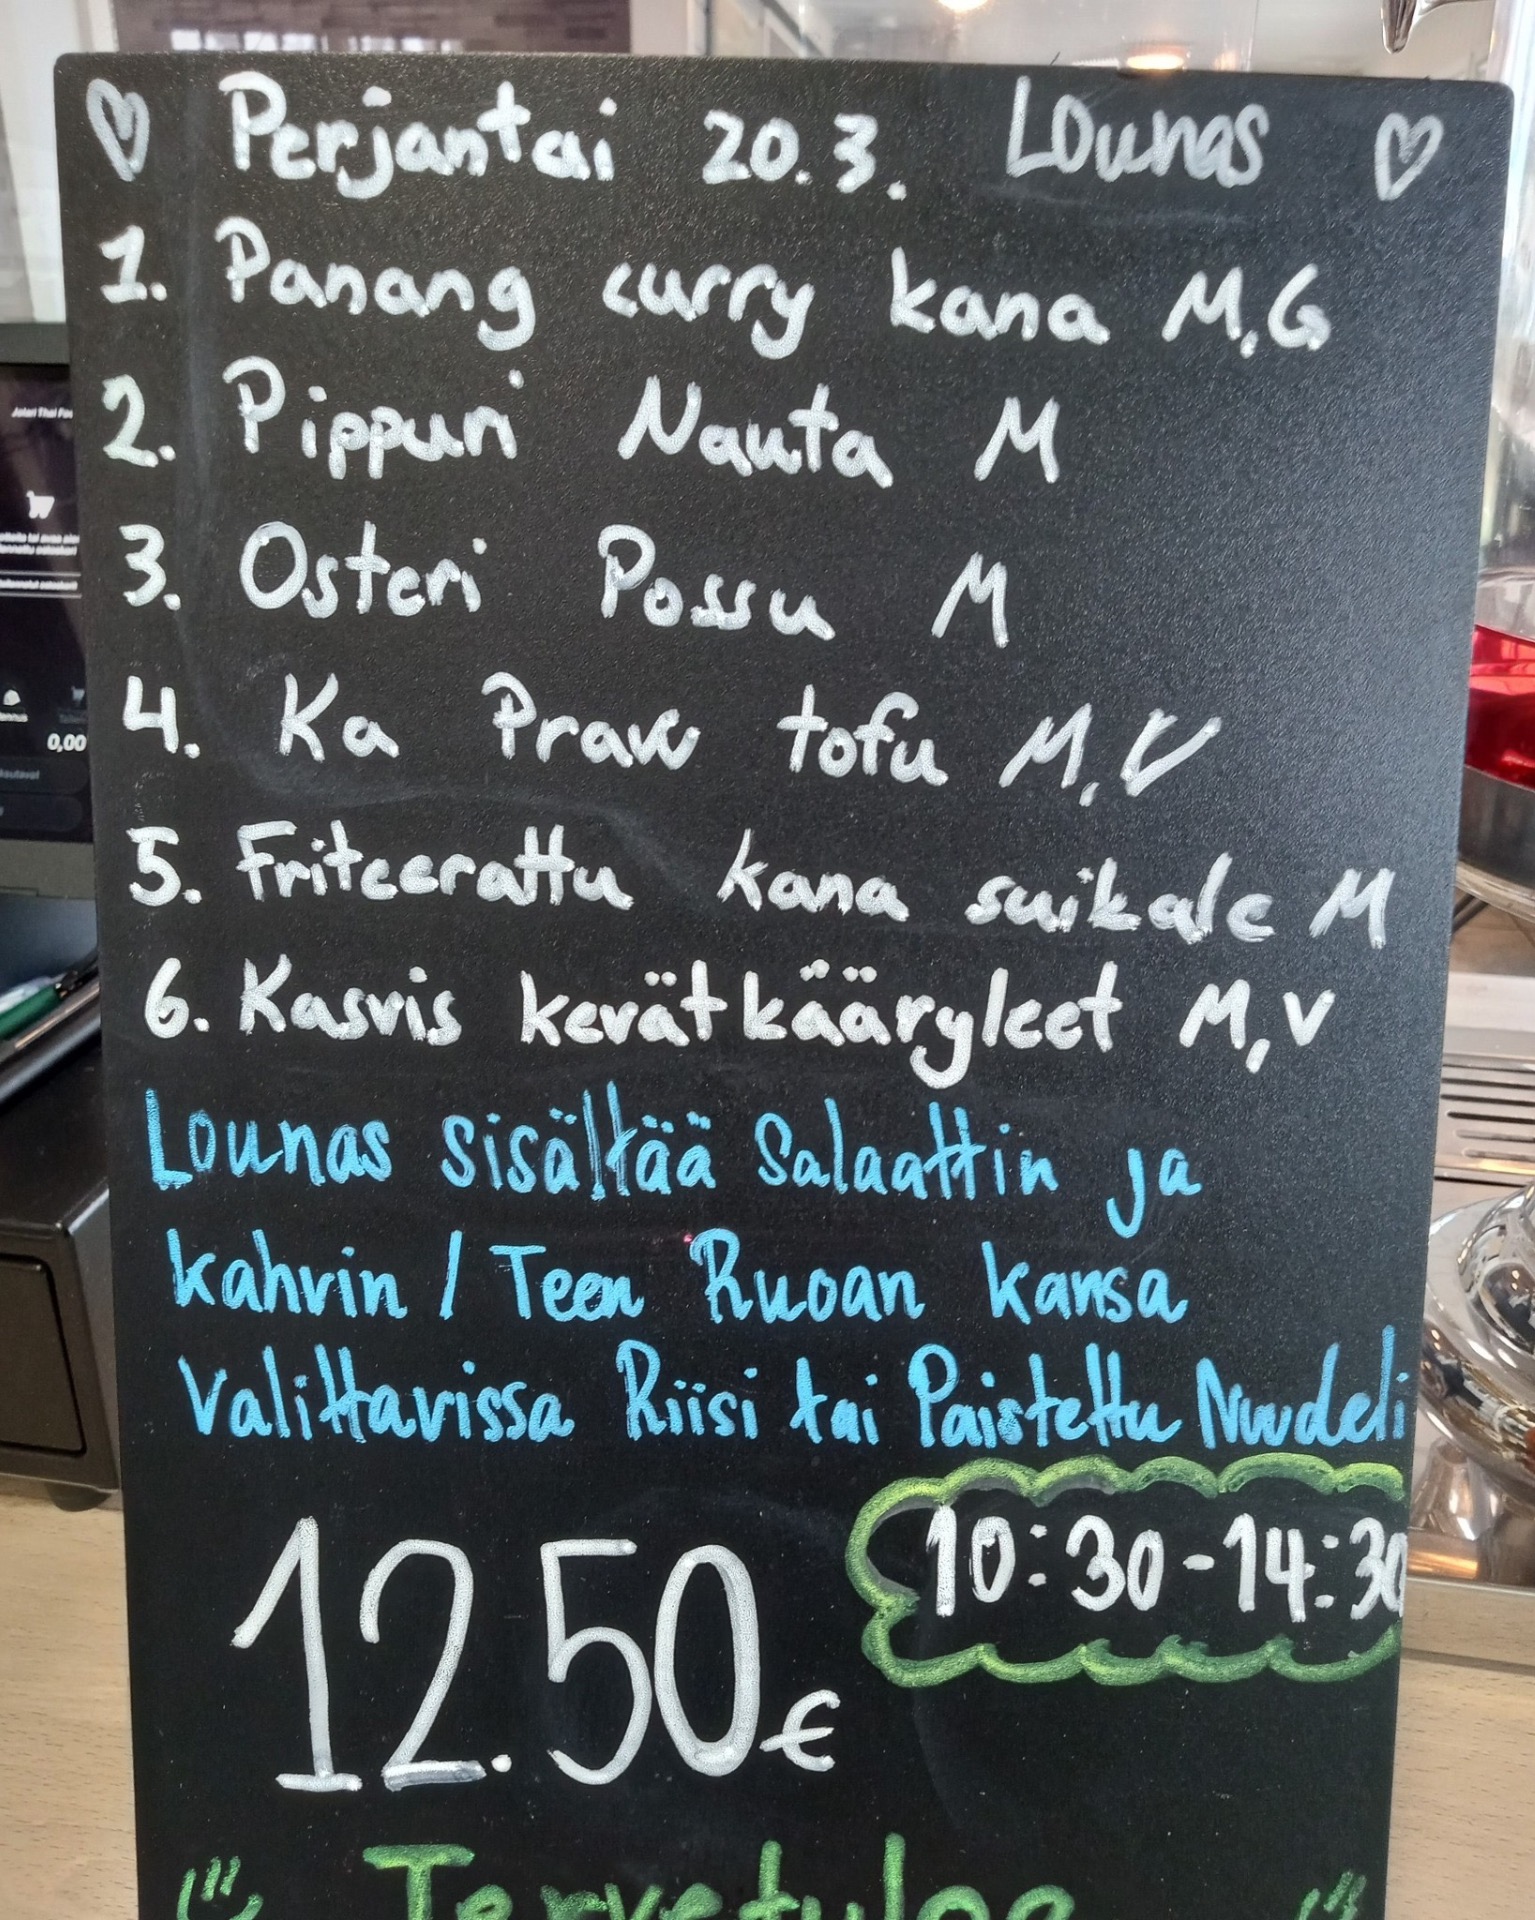 ♡ Perjantai 20.3. Lounas ♡
1. Panang curry kana M,G
2. Pippuri Nauta M
3. Osteri Possu M
4. Ka Praw tofu M,V
5. Friteerattu kana suikale M
6. Kasvis kevätkääryleet M,V
Lounas sisältää Salaattin ja
kahvin / Teen Ruoan kansa
Valittavissa Riisi tai Paistettu Nuudeli
12.50€
10:30-14:30
Tervetuloa
0,00